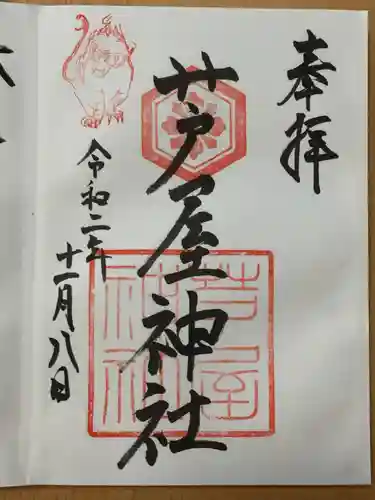 奉拝
芦屋神社
令和二年
十一月八日
芦屋
神社